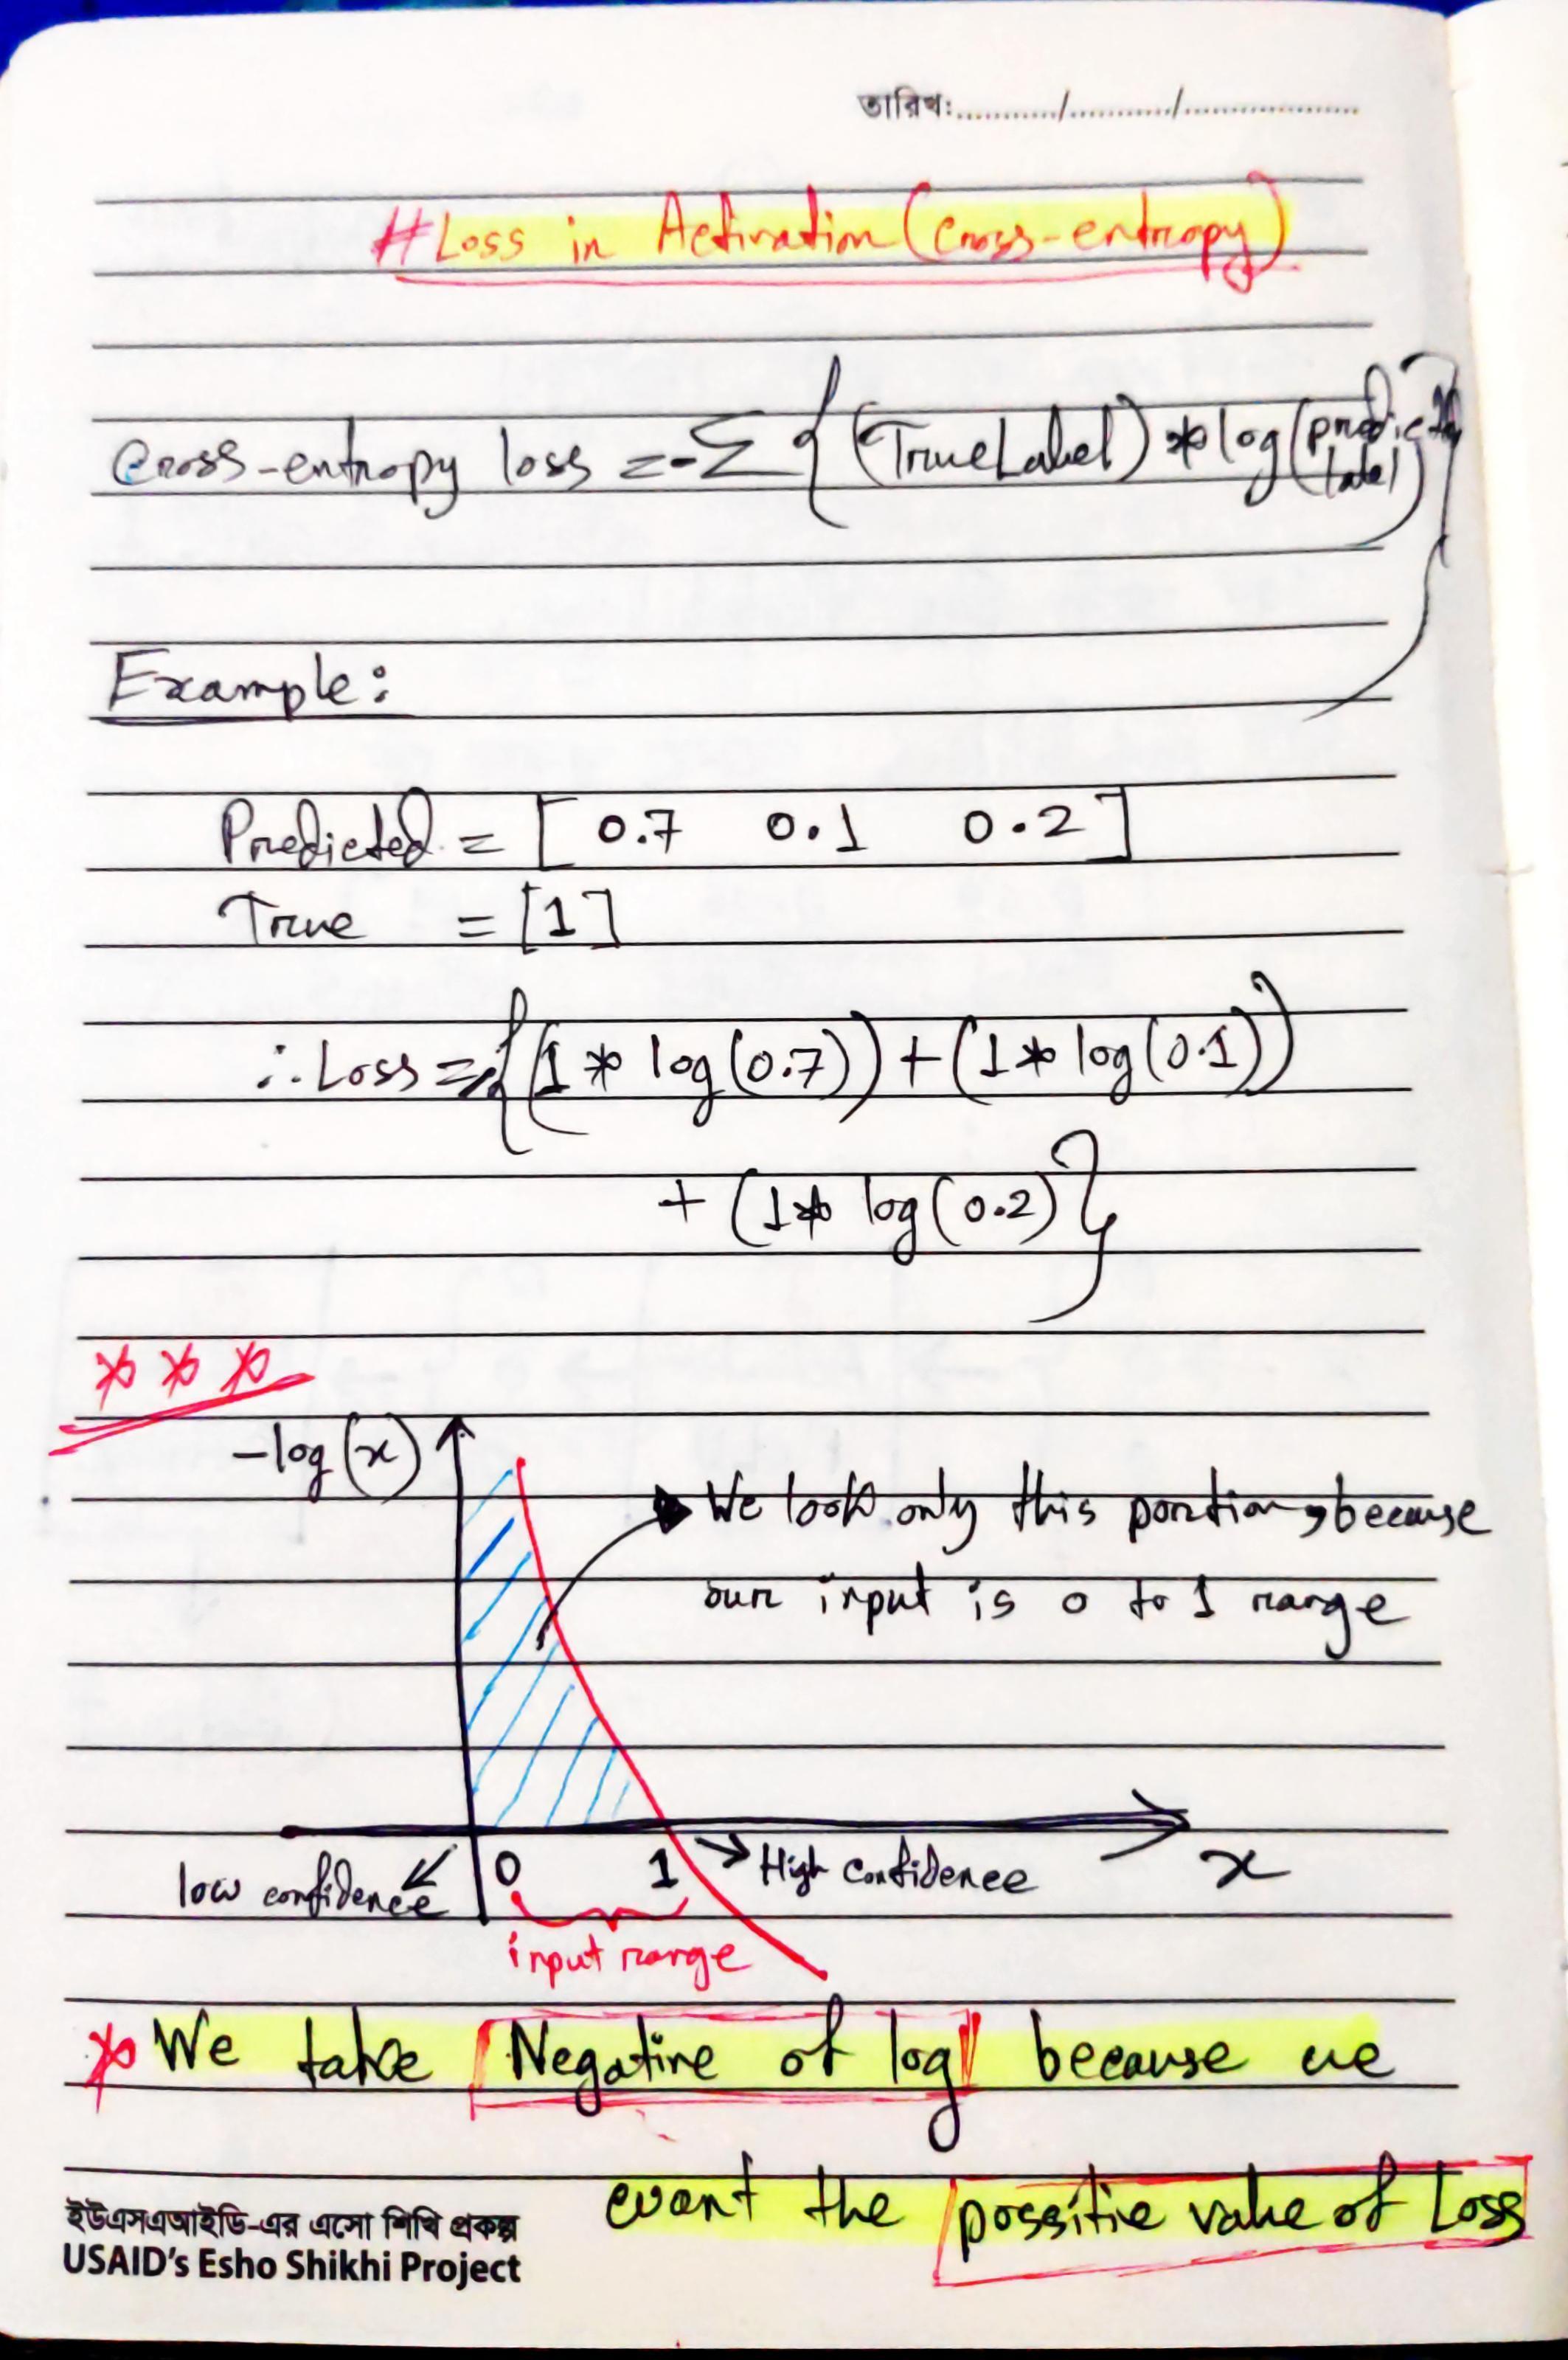 তারিখ:............/............/....................
#Loss in Activation (cross-entropy)
cross-entropy loss = -Σ { (TrueLabel) * log (predicted label) }
Example:
Predicted = [ 0.7 0.1 0.2 ]
True = [1]
∴ Loss = -{ (1 * log (0.7)) + (1 * log (0.1))
+ (1 * log (0.2) }
* * *
-log(x)
We look only this portion, because
our input is 0 to 1 range
low confidence 0 1 High confidence x
input range
* We take Negative of log because we
want the possitie value of Loss
ইউএসএআইডি-এর এসো শিখি প্রকল্প
USAID's Esho Shikhi Project